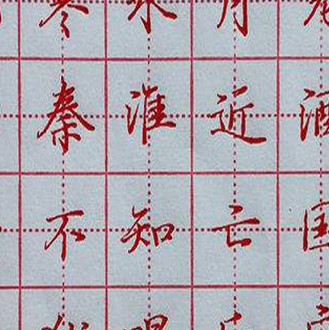 寒水月
秦淮近酒
不知亡国